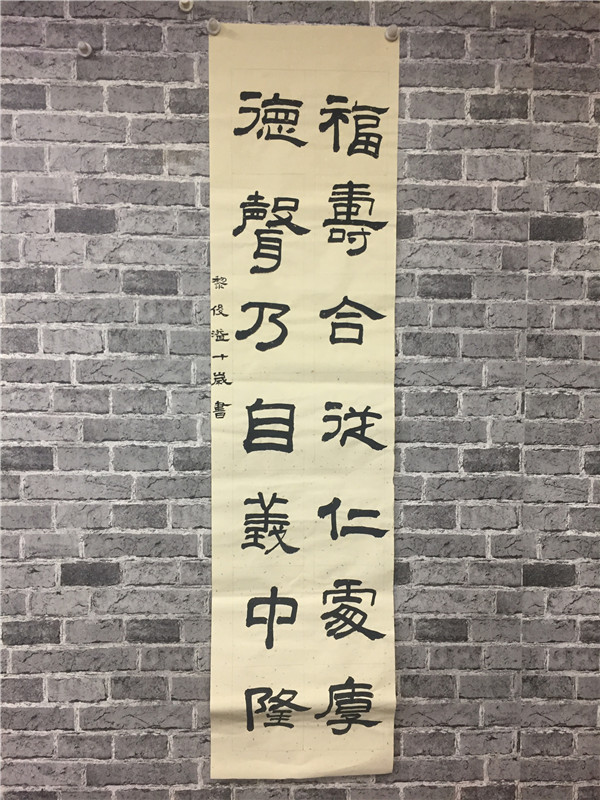 福壽合從仁處厚
德聲乃自義中隆
黎俊溢十歲書